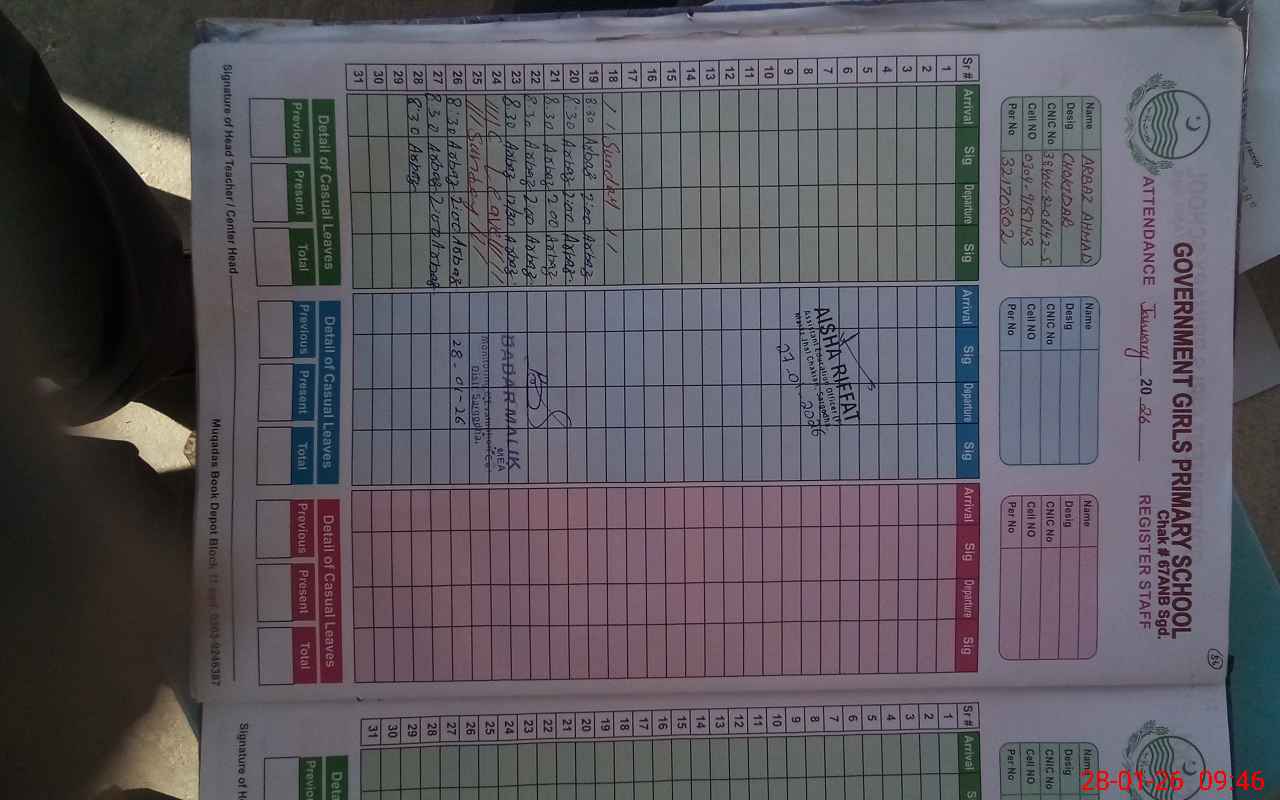 GOVERNMENT GIRLS PRIMARY SCHOOL
Chak # 67ANB Sgd.
ATTENDANCE January 2026 REGISTER STAFF
86
Name ARBAZ AHMAD
Desig CHOKIDAR
CNIC No
Cell NO
Per No 32170802
Name
Desig
CNIC No
Cell NO
Per No
Name
Desig
CNIC No
Cell NO
Per No
Sr # Arrival Sig Departure Sig Arrival Sig Departure Sig Arrival Sig Departure Sig
1
2
3
4
5
6
7
8
9
10
11
12
13
14
15
16
17
18 / / Sunday / /
19 8:30 Arbaz 2:00 Arbaz
20 8:30 Arbaz 2:00 Arbaz
21 8:30 Arbaz 2:00 Arbaz
22 8:30 Arbaz 2:00 Arbaz
23 8:30 Arbaz 12:30 Arbaz
24
25 //// Sunday ////
26 8:30 Arbaz 2:00 Arbaz
27 8:30 Arbaz 2:00 Arbaz
28 8:30 Arbaz
29
30
31
AISHA RIFFAT
Assistant Education Officer (F)
Sargodha
27.01.2026
BABAR MALIK
MEA
Distt Sargodha.
28-01-26
Detail of Casual Leaves
Previous Present Total
Detail of Casual Leaves
Previous Present Total
Detail of Casual Leaves
Previous Present Total
Signature of Head Teacher / Center Head
Muqadas Book Depot Block 11 sgd. 0303-9246387
Sr #
Arrival
1
2
3
4
5
6
7
8
9
10
11
12
13
14
15
16
17
18
19
20
21
22
23
24
25
26
27
28
29
30
31
Name
Desig
CNIC No
Cell NO
Per No
Signature of H
28-01-26 09:46